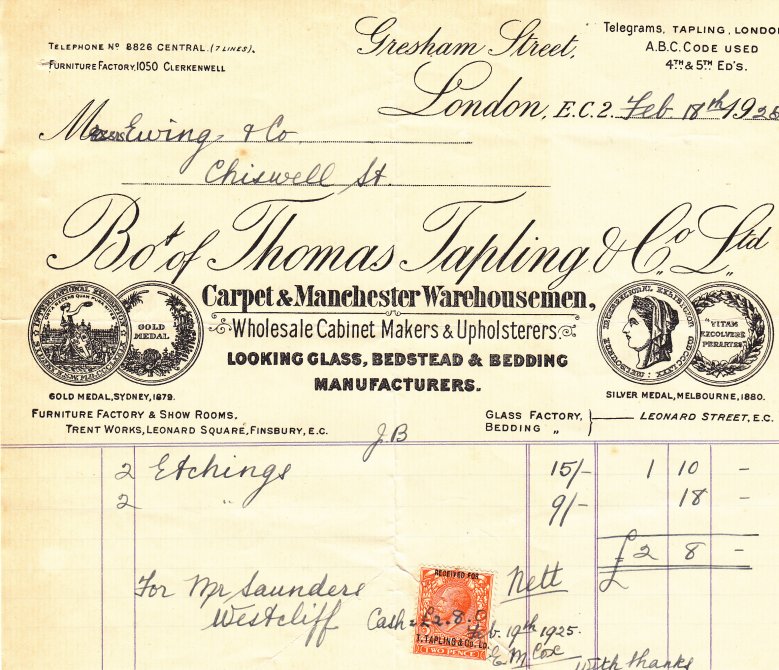 TELEPHONE No 8826 CENTRAL. (7 LINES).
FURNITURE FACTORY, 1050 CLERKENWELL
Gresham Street,
Telegrams, TAPLING, LONDON
A.B.C. CODE USED
4TH & 5TH ED'S.
London, E.C.2. Feb 18th 1925
M Ewing & Co
Chiswell St.
Bot of Thomas Tapling & Co Ltd
Carpet & Manchester Warehousemen,
Wholesale Cabinet Makers & Upholsterers
LOOKING GLASS, BEDSTEAD & BEDDING
MANUFACTURERS.
GOLD MEDAL
"VITAM EXCOLVERE PER ARTES"
GOLD MEDAL, SYDNEY, 1879.
SILVER MEDAL, MELBOURNE, 1880.
FURNITURE FACTORY & SHOW ROOMS.
TRENT WORKS, LEONARD SQUARE, FINSBURY, E.C.
GLASS FACTORY,
BEDDING "
LEONARD STREET, E.C.
J.B
2 Etchings 15/- 1 10 -
2 " 9/- 18 -
£ 2 8 -
Nett £
For Mr Saunders
Westcliff
Cash = £2.8.0
RECEIVED FOR
T. TAPLING & Co. LD.
TWO PENCE
Feb. 19th 1925.
E M Cox
With thanks